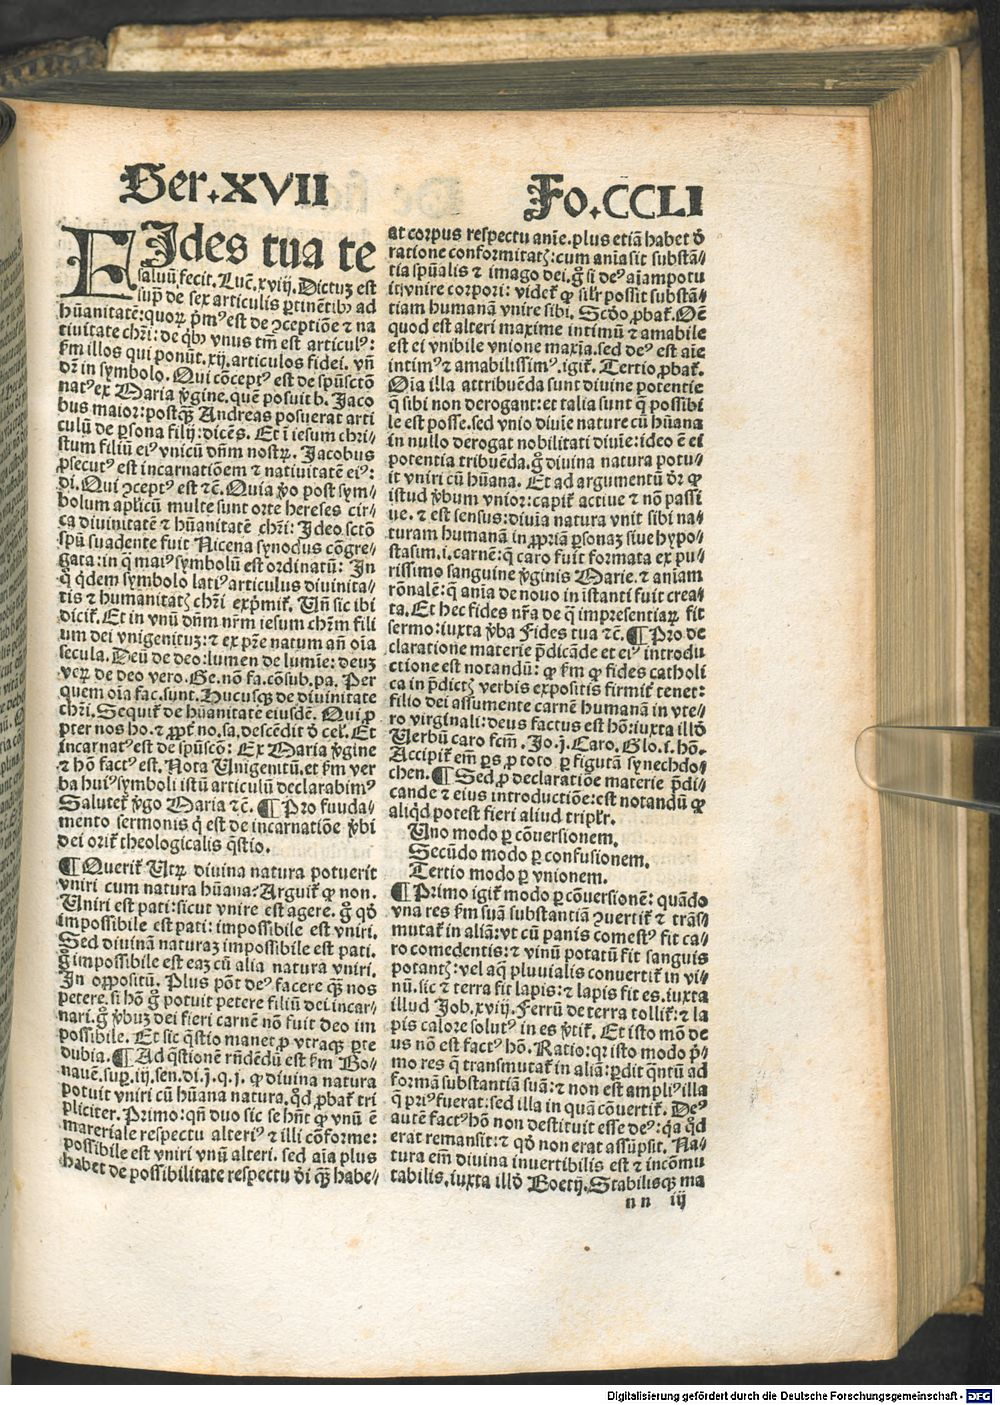 Ser.XVII
Fo.CCLI
FIdes tua te
saluū fecit. Luc̄.xviij. Dictuȝ est
sup̄ de sex articulis ꝑtinētibꝰ ad
hūanitatē: quoꝝ p̄mꝰ est de ↄceptiōe ⁊ na
tiuitate chr̄i: de q̄bꝰ vnus tm̄ est articulꝰ:
k̄m illos qui ponūt.xij.articulos fidei. vn̄
dr̄ in symbolo. Qui cōceptꝰ est de spūsctō
natꝰ ex Maria v̄gine. quē posuit b. Jaco
bus maior: postq̄ȝ Andreas posuerat arti
culū de ꝑsona filij: dicēs. Et ī iesum chri-
stum filiū eiꝰ vnicū dn̄m nostꝝ. Jacobus
ꝓsecutꝰ est incarnatiōem ⁊ natiuitatē eiꝰ:
di. Qui ↄceptꝰ est ⁊c̄. Quia v̄o post sym-
bolum apl̄icū multe sunt orte hereses cir-
ca diuinitatē ⁊ hūanitatē chr̄i: Ideo sctō
spū suadente fuit Nicena synodus cōgre-
gata: in q̄ maiꝰ symbolū est ordinatū: In
q̄ q̄dem symbolo latiꝰ articulus diuinita-
tis ⁊ humanitatꝭ chr̄i exp̄mit̄. Vn̄ sic ibi
dicit̄. Et in vnū dn̄m nr̄m iesum chr̄m fili
um dei vnigenituȝ: ⁊ ex pr̄e natum an̄ oīa
secula. Deū de deo: lumen de lumīe: deuȝ
veꝝ de deo vero. Ge. nō fa. cōsub. pa. Per
quem oīa fac. sunt. Hucusqȝ de diuinitate
chr̄i. Sequit̄ de hūanitate eiusdē. Qui ꝓ
pter nos ho. ⁊ ꝓpt̄ no. sa. descēdit d̄ cel̄. Et
incarnatꝰ est de spūscō: Ex Maria v̄gine
⁊ hō factꝰ est. Nota Unigenitū. et k̄m ver
ba huiꝰ symboli istū articulū declarabimꝰ
Salutet̄ v̄go Maria ⁊c̄. ¶ Pro fuuda-
mento sermonis q̄ est de incarnatiōe v̄bi
dei orit̄ theologicalis q̄stio.
¶ Querit̄ Utꝝ diuina natura potuerit
vniri cum natura hūana: Arguit̄ ꝙ non.
Uniri est pati: sicut vnire est agere. g̊ qd̄
impossibile est pati: impossibile est vniri.
Sed diuinā naturaȝ impossibile est pati.
g̊ impossibile est eaȝ cū alia natura vniri.
In oꝓpositū. Plus pōt deꝰ facere q̄ȝ nos
petere. si hō g̊ potuit petere filiū dei incar-
nari. g̊ v̄buȝ dei fieri carnē nō fuit deo im
possibile. Et sic q̄stio manet ꝓ vtraqȝ ꝑte
dubia. ¶ Ad q̄stionē rn̄dēdū est k̄m Bo-
nauē. suꝑ.iij.sen.di.j.q.j. ꝙ diuina natura
potuit vniri cū hūana natura. qd̄ ꝓbat̄ tri
pliciter. Primo: qn̄ duo sic se hn̄t ꝙ vnū ē
mareriale respectu alteriꝰ ⁊ illi cōforme:
possibile est vniri vnū alteri. sed aīa plus
habet de possibilitate respectu d̄i q̄ȝ habe-
at corpus respectu anīe. plus etiā habet d̄
ratione conformitatꝭ: cum anīa sit substā-
tia spūalis ⁊ imago dei. g̊ si deꝰ aīam potu
it vnire corpori: videt̄ ꝙ sil̄r possit substā-
tiam humanā vnire sibi. Scd̄o ꝓbat̄. Oē
quod est alteri maxime intimū ⁊ amabile
est ei vnibile vnione maxīa. sed deꝰ est aīe
intimꝰ ⁊ amabilissimꝰ. igit̄. Tertio ꝓbat̄.
Oīa illa attribuēda sunt diuine potentie
q̄ sibi non derogant: et talia sunt q̄ possibi
le est posse. sed vnio diuīe nature cū hūana
in nullo derogat nobilitati diuīe: ideo ē ei
potentia tribuēda. g̊ diuina natura potu-
it vniri cū hūana. Et ad argumentū dr̄ ꝙ
istud v̄bum vnior: capit̄ actiue ⁊ nō passi
ue. ⁊ est sensus: diuīa natura vnit sibi na-
turam humanā in ꝓpriā ꝑsonaȝ siue hypo-
stasim .i. carnē: q̄ caro fuit formata ex pu-
rissimo sanguine v̄ginis Marie. ⁊ anīam
rōnalē: q̄ anīa de nouo in īstanti fuit crea-
ta. Et hec fides nr̄a de q̄ impresentiaꝝ fit
sermo: iuxta v̄ba Fides tua ⁊c̄. ¶ Pro de
claratione materie p̄dicāde et eiꝰ introdu
ctione est notandū: ꝙ k̄m ꝙ fides catholi
ca in p̄dictꝭ verbis expositis firmit̄ tenet:
filio dei assumente carnē humanā in vte-
ro virginali: deus factus est hō: iuxta illd̄
Uerbū caro fcm̄. Jo.j. Caro, Glo.i. hō.
Accipit̄ em̄ ꝑs ꝓ toto ꝑ figurā synechdo-
chen. ¶ Sed ꝓ declaratiōe materie p̄di-
cande ⁊ eius introductiōe: est notandū ꝙ
aliqd̄ potest fieri aliud tripl̄r.
Uno modo ꝑ cōuersionem.
Secūdo modo ꝑ confusionem.
Tertio modo ꝑ vnionem.
¶ Primo igit̄ modo ꝑ cōuersionē: quādo
vna res k̄m suā substantiā ↄuertit̄ ⁊ trās-
mutat̄ in aliā: vt cū panis comestꝰ fit ca-
ro comedentis: ⁊ vinū potatū fit sanguis
potantꝭ: vel aq̄ pluuialis conuertit̄ in vi-
nū. sic ⁊ terra fit lapis: ⁊ lapis fit es. iuxta
illud Job.xviij. Ferrū de terra tollit̄: ⁊ la
pis calore solutꝰ in es v̄tit̄. Et isto mō de
us nō est factꝰ hō. Ratio: qr isto modo p̄-
mo res q̄ transmutat̄ in aliā: ꝑdit q̄ntū ad
formā substantiā suā: ⁊ non est ampliꝰ illa
q̄ priꝰ fuerat: sed illa in quā cōuertit̄. Deꝰ
autē factꝰ hō non destituit esse deꝰ: q̄a qd̄
erat remansit: ⁊ qd̄ non erat assūpsit. Na-
tura em̄ diuina inuertibilis est ⁊ incōmu
tabilis. iuxta illd̄ Boetij. Stabilisqȝ ma
nn iij
Digitalisierung gefördert durch die Deutsche Forschungsgemeinschaft - DFG